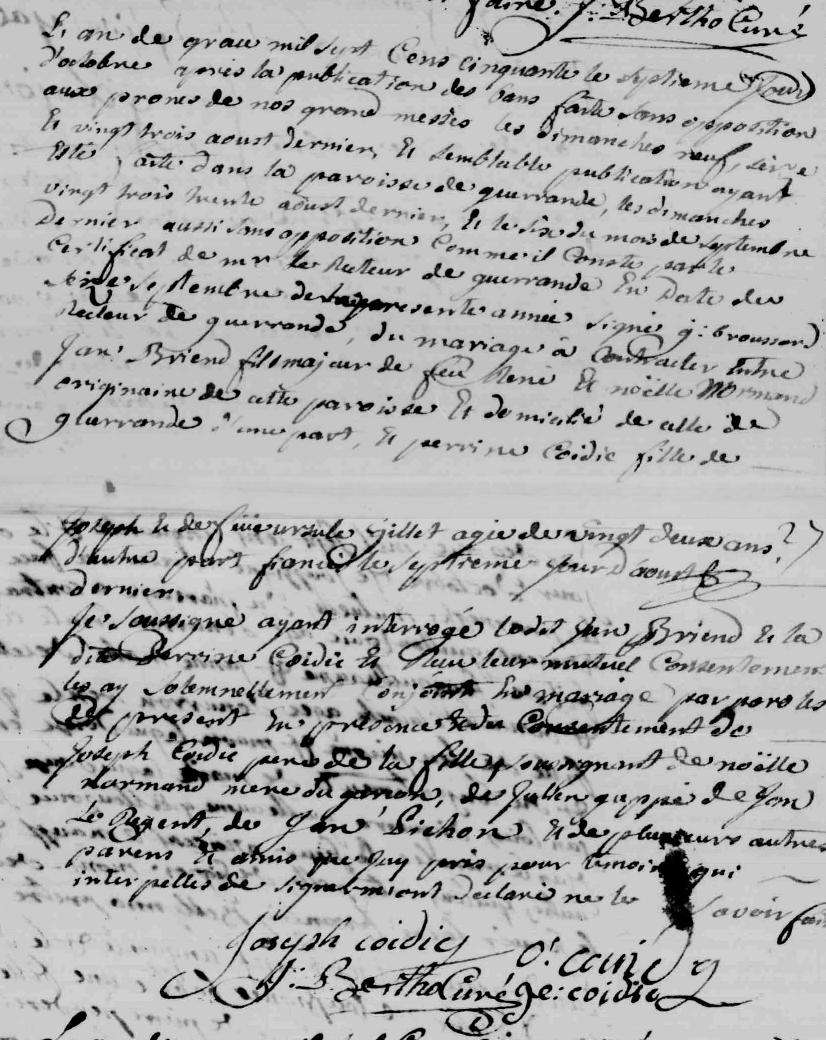 faire. J: Bertho Curé
L'an de grace mil sept Cens cinquante le septieme Jour
d'octobre après la publication des bans faite sans opposition
aux prones de nos grand messes les dimanches neuf, seize
Et vingt trois aoust dernier, Et semblable publication ayant
Esté faite dans la paroisse de guerrande, les dimanches
vingt trois trente aoust dernier, Et le six du mois de septembre
Dernier aussi sans opposition Comme il Conste par le
Certificat de mr le Recteur de guerrande En Date du
septembre de la presente année signé g: broussard
Recteur de guerrande, du mariage à Contracter Entre
Jan Briend fils majeur de feu René Et noëlle Normand
originaire de cette paroisse Et domicilié de celle de
guerrande d'une part, Et perrine Coidic fille de
Joseph Et de feüe ursule Gillet agée de vingt deux ans
d'autre part fiancés le septieme jour d'aoust
dernier
Je soussigné ayant interrogé ledit Jan Briend Et la
dite Perrine Coidic Et Reçu leur mutuel Consentement
les ay solemnellement Conjoint En mariage par paroles
de present En presence Et du Consentement de
Joseph Coidic pere de la fille, soussignant de noëlle
Normand mere du garçon, de Julien guppé de Jan
Le Regent, de Jan Lichon Et de plusieurs autres
parens Et amis que J'ay pris pour temoins qui
interpellés de signer m'ont declaré ne le savoir faire
Joseph coidic
J: Bertho Curé J: coidic